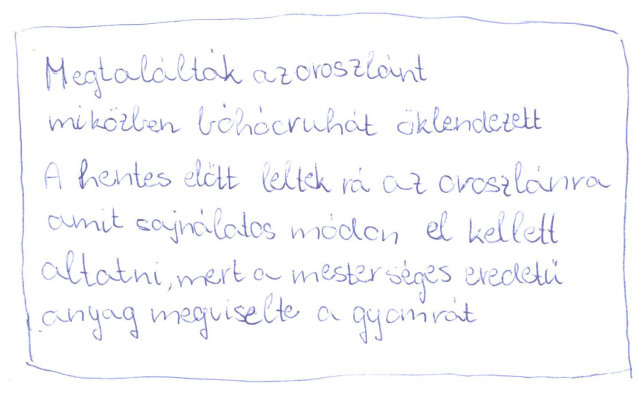 Megtalálták az oroszlánt
miközben bóhócruhát öklendezett
A hentes előtt leltek rá az oroszlánra
amit sajnálatos módon el kellett
altatni, mert a mesterséges eredetű
anyag megviselte a gyomrát